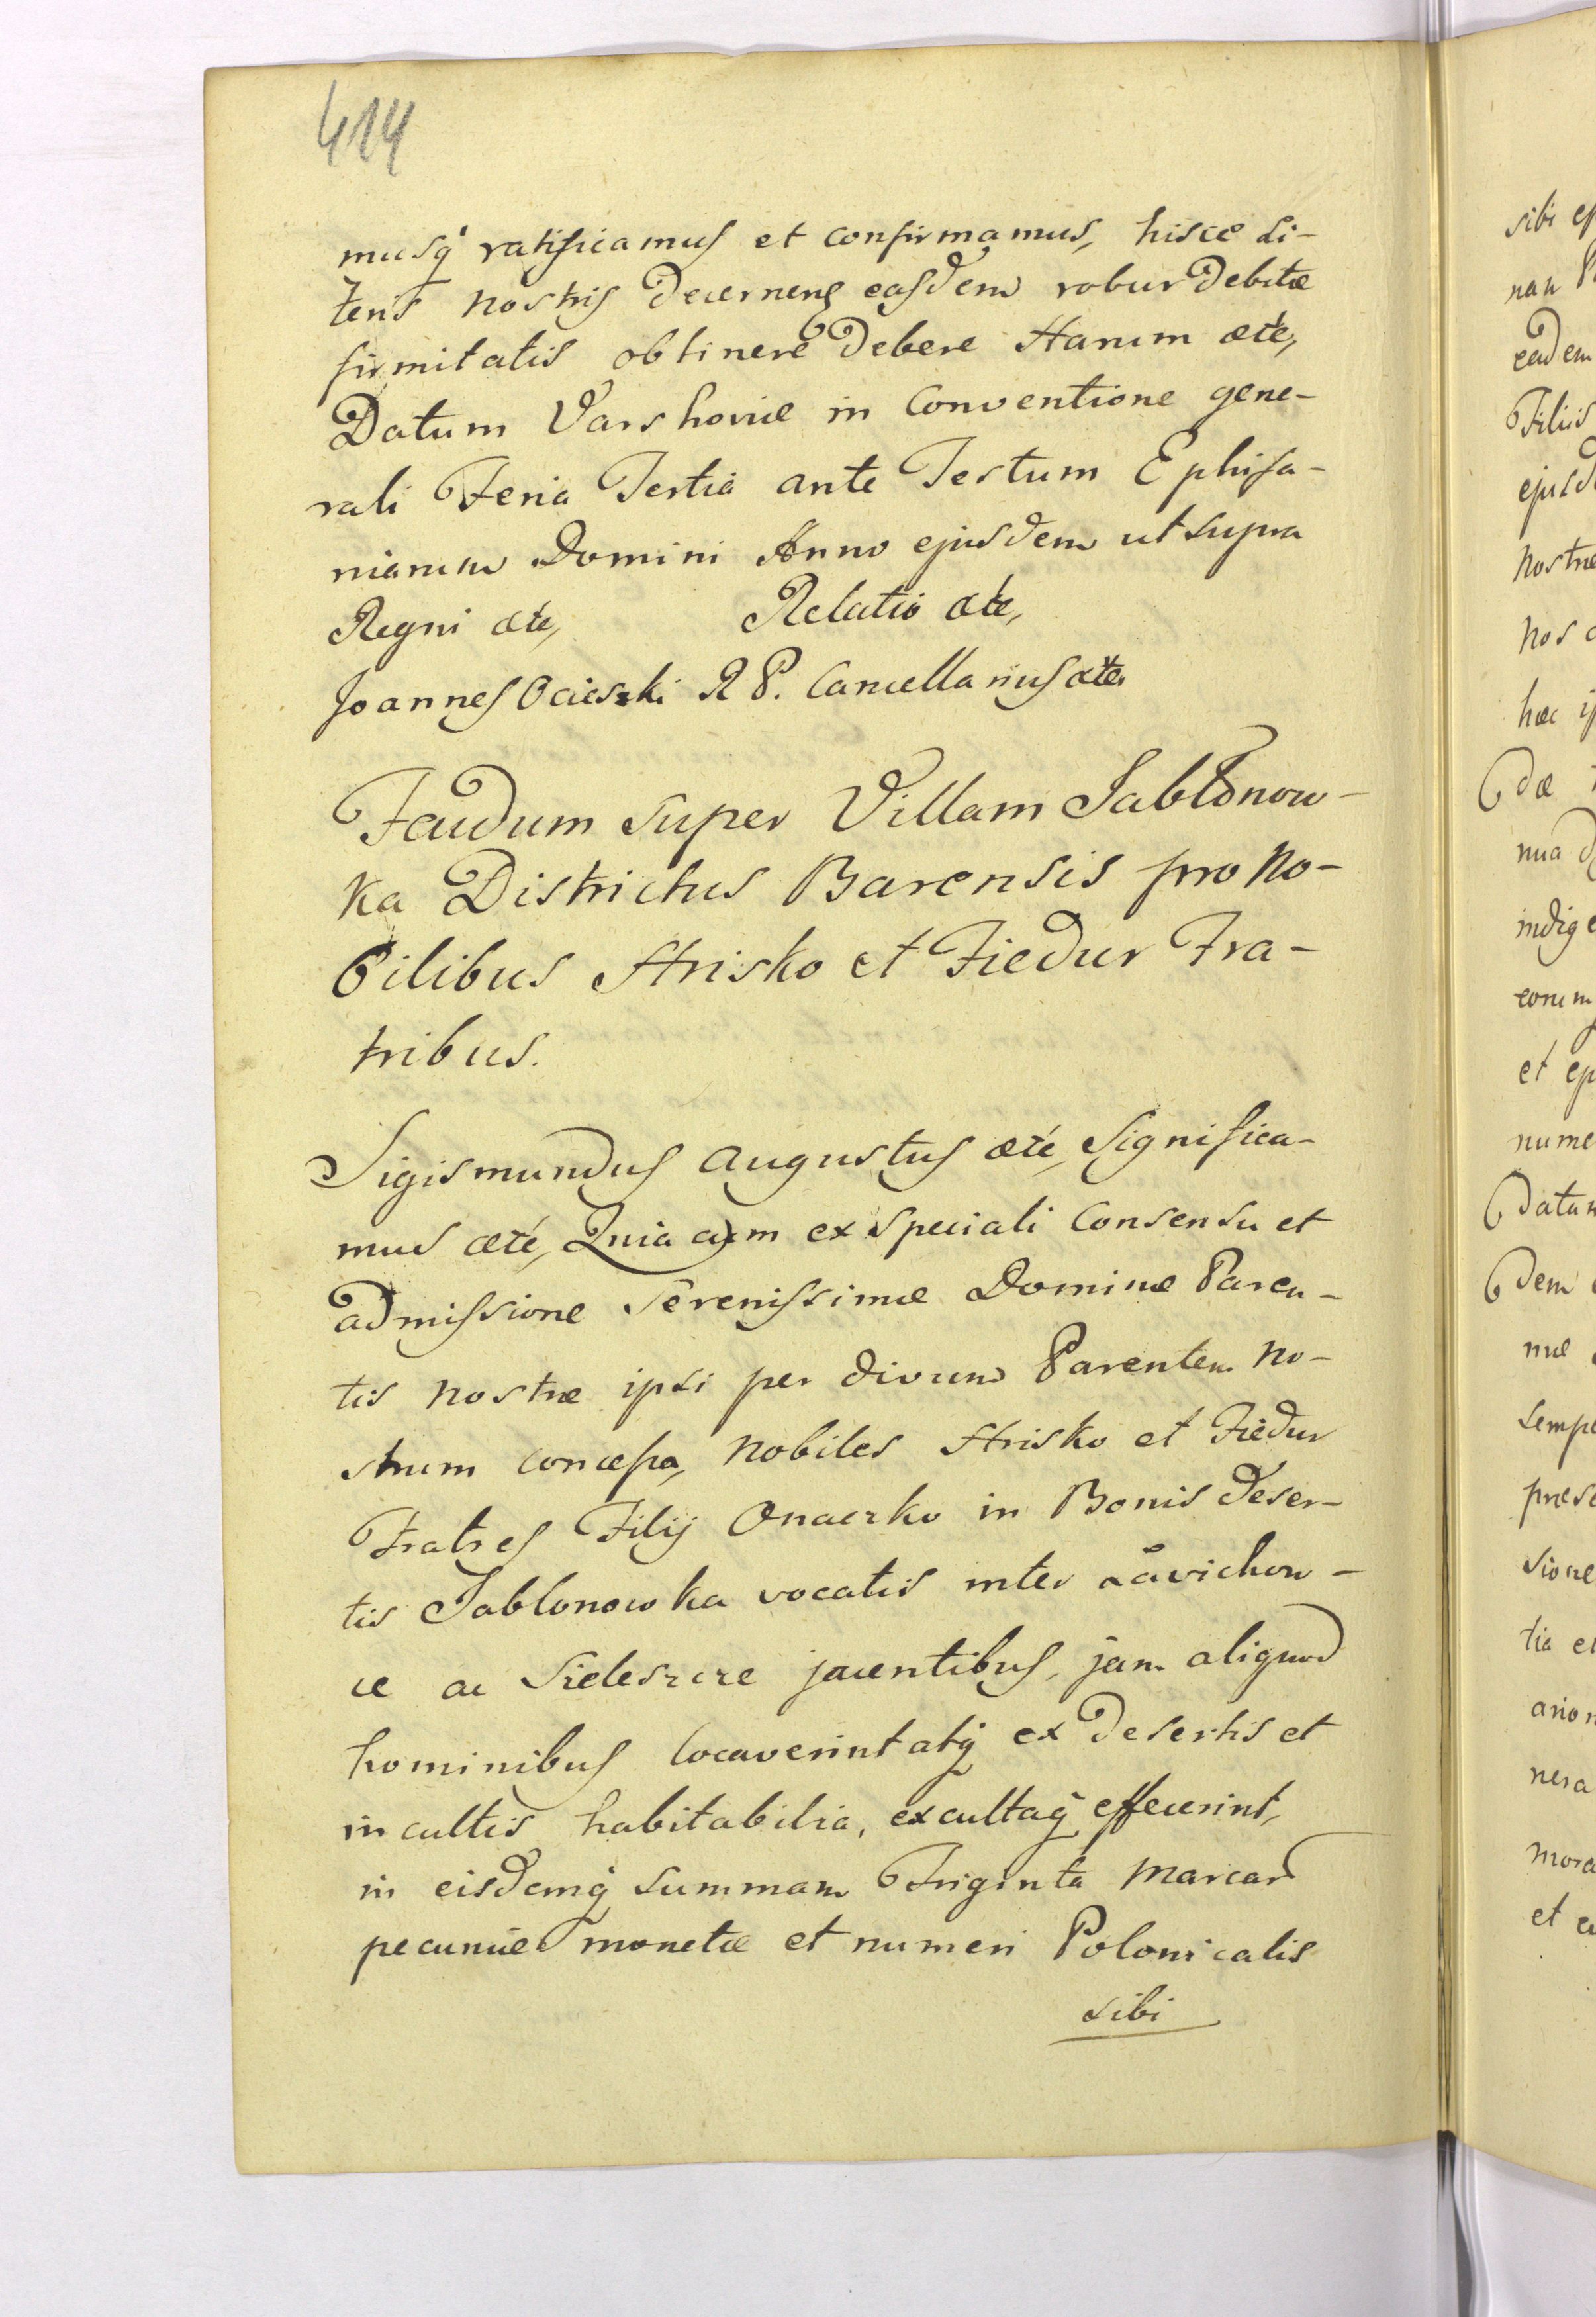 414
musq ratificamus et confirmamus, hisce Li-
teris nostris decernens easdem robur debitæ
firmitatis obtinere debere Harum ætc,
Datum Varshoviæ in Conventione gene-
rali Feria Tertia ante Festum Ephifa-
niarum Domini Anno ejusdem ut supra
Regni ætc, Relatio ætc,
Joannes Ocieszki R P. Cancellarius ætc
Faudum super Villam Jabłonow-
ka Districtus Barensis pro No-
bilibus Hrisko et Fiedur Fra-
tribus.
Sigismundus Augustus ætc, Significa-
mus ætc, Quia cum ex speciali Consensu et
admissione Serenissimæ Dominæ Paren-
tis nostræ ipsi per divum Parentem No-
strum concessa, Nobiles Hrisko et Fiedur
Fratres Filij Onaczko in Bonis deser-
tis Jablonowka vocatis inter Lavichow-
ce ac Sieleszcze jacentibus, jam aliquod
hominibus locaverint atq ex desertis et
incultis habitabilia, excultaq effecerint,
in eisdemq summam Triginta Marcar
pecuniæ monetæ et numeri Polonicalis
sibi
sibi
nan
eadem
Filiis
nostræ
nos
hæc
dæ
indige
eorum
et
nume
datum
dem
semp
sione
tia
nera
mora
et